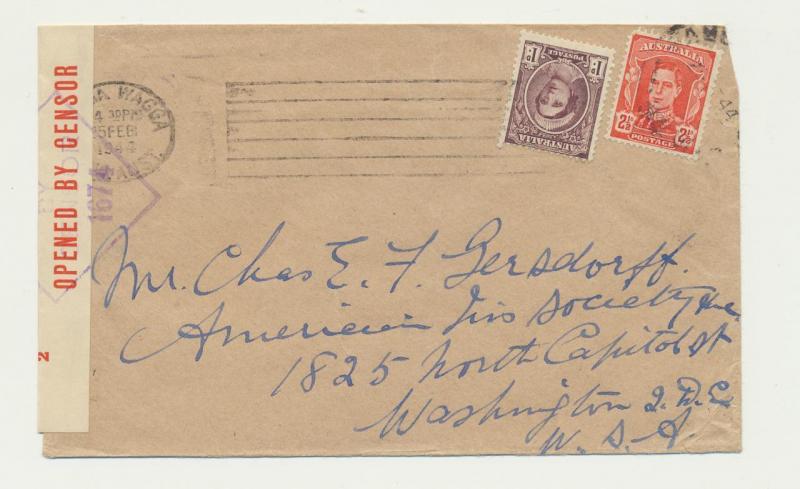 OPENED BY CENSOR
2
1674
WAGGA
4 30PM
5FEB
1944
AUST
1D.
1D.
POSTAGE
AUSTRALIA
AUSTRALIA
2½D
2½D
44
Mr. Chas E. F. Gersdorff.
American Iris Society Inc.
1825 North Capitol St
Washington 2. D.C.
U. S. A.